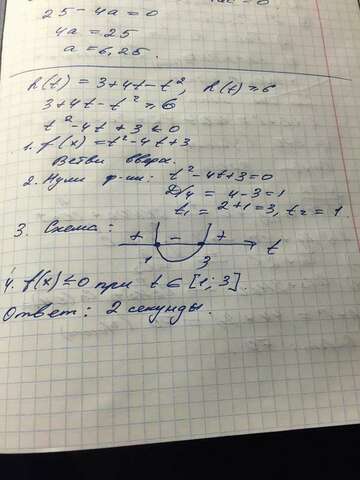 25 - 4a = 0
4a = 25
a = 6,25.
h(t) = 3+4t-t², h(t) ≥ 6
3+4t-t² ≥ 6
t²-4t+3 ≤ 0
1. f(x) = t²-4t+3
Ветви вверх.
2. Нули ф-ии: t²-4t+3=0
D/4 = 4-3=1
t₁ = 2+1=3, t₂ = 1.
3. Схема:
+ - +
1 3 t
4. f(x) ≤ 0 при t ∈ [1; 3].
Ответ: 2 секунды.